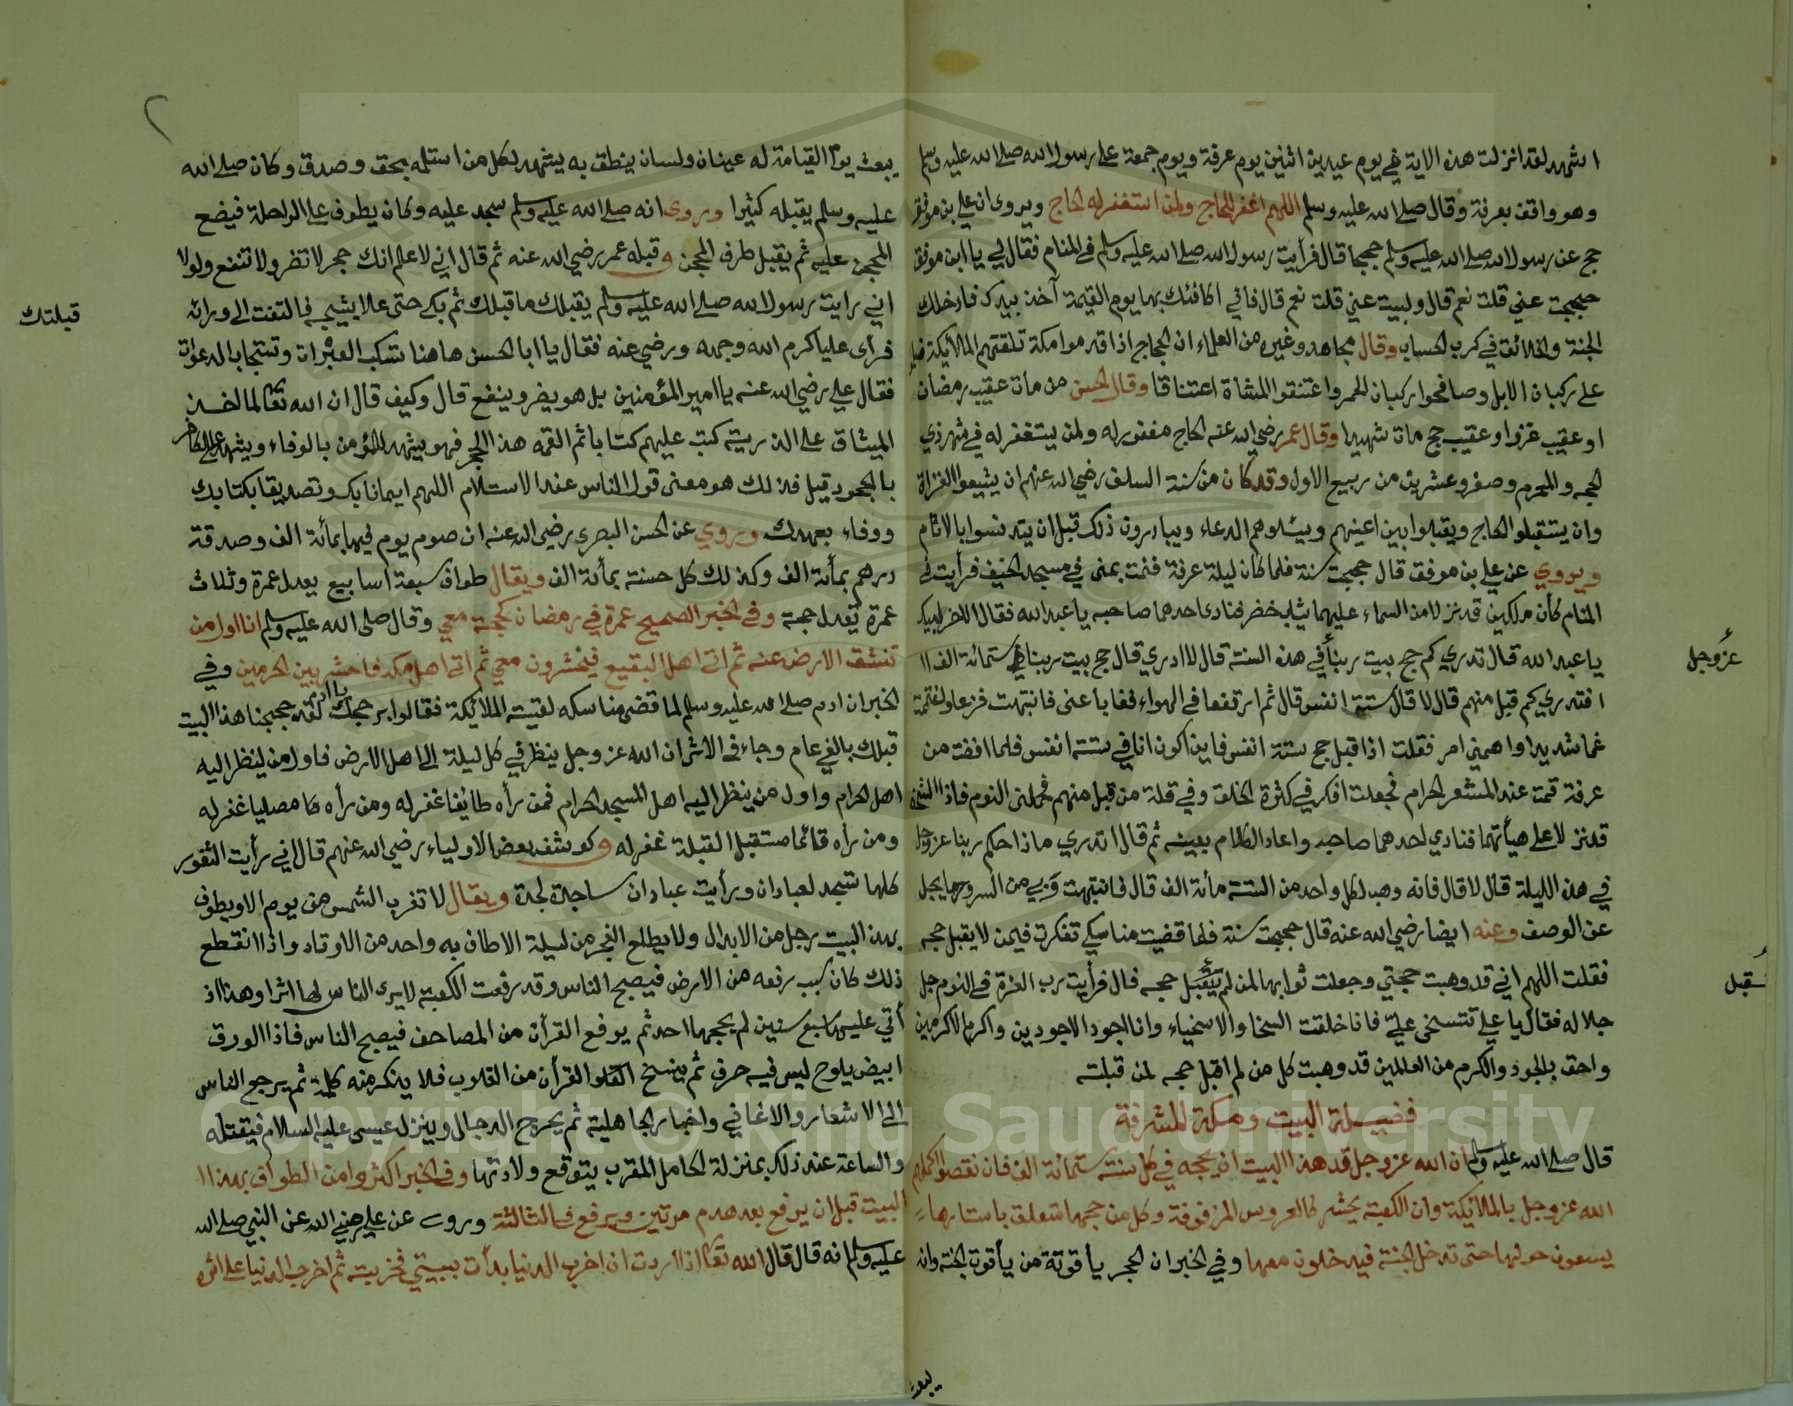 اشهد لقد انزلت هذه الاية في يوم عيدين اثنين يوم عرفة ويوم جمعة على رسول الله صلى الله عليه وسلم
وهو واقف بعرفة وقال صلى الله عليه وسلم اللهم اغفر للحاج ولمن استغفر له الحاج ويروى ان علي بن موفق
حج عن رسول الله صلى الله عليه وسلم حججا قال فرأيت رسول الله صلى الله عليه وسلم في المنام فقال لي يا ابن موفق
حججت عني قلت نعم قال ولبيت عني قلت نعم قال فاني اكافئك بها يوم القيمة آخذ بيدك فادخلك
الجنة والخلائق في كرب الحساب وقال مجاهد وغيره من العلماء ان الحجاج اذا قدموا مكة تلقتهم الملائكة
على ركبان الابل وصافحوا ركبان الحمر واعتنقوا المشاة اعتناقا وقال الحسن من مات عقيب رمضان
او عقيب غزو او عقيب حج مات شهيدا وقال عمر رضي الله عنه الحاج مغفور له ولمن يستغفر له في شهر ذي
الحجه والمحرم وصفر وعشرين من ربيع الاول وقد كان من سنة السلف رضي الله عنهم ان يشيعوا الغزاة
وان يستقبلوا الحاج ويقبلوا بين اعينهم ويسئلوهم الدعاء ويبادرون ذلك قبل ان يتدنسوا بالاثام
ويروي عن علي بن موفق قال حججت سنة فلما كان ليلة عرفة فنمت بمنى في مسجد الخيف فرأيت في
المنام كأن ملكين قد نزلا من السماء عليهما ثياب خضر فنادى احدهما صاحبه يا عبد الله فقال الاخر لبيك
يا عبد الله قال تدري كم حج بيت ربنا في هذه السنة قال لا ادري قال حج بيت ربنا عزوجل ستمائة الف
افتدري كم قبل منهم قال لا قال ستة انفس قال ثم ارتفعا في الهواء فغابا عني فانتبهت فزعا واغتممت
غما شديدا واهمني امر فقلت اذا قبل حج ستة انفس فاين اكون انا في ستة انفس فلما افضت من
عرفة قمت عند المشعر الحرام فجعلت افكر في كثرة الخلق وفي قلة من قبل منهم فحملني النوم فاذا
قد نزلا على هيأتهما فنادي احدهما صاحبه واعاد الكلام بعينه ثم قال اتدري ماذا حكم ربنا عزوجل
في هذه الليلة قال لا قال فانه وهب لكل واحد من الستة مأئة الف قال فانتبهت وبي من السرور ما يجل
عن الوصف وعنه ايضا رضي الله عنه قال حججت سنة فلما قضيت مناسكي تفكرت فيمن لا يقبل حجه
فقلت اللهم اني قد وهبت حجتي وجعلت ثوابها لمن لم يتقبل حجه قال فرأيت رب العزة في النوم جل
جلاله فقال يا علي تتسخى علي فانا خلقت السخا والاسخياء وانا اجود الاجودين واكرم الاكرمين
واحق بالجود والكرم من العالمين قد وهبت كل من لم اقبل حجه لمن قبلته
فضيلة البيت ومكة المشرفة
قال صلى الله عليه وسلم ان الله عزوجل قد هذا البيت ان يحجه في كل سنة ستمائة الف فان نقصوا اكملهم
الله عزوجل بالملائكة وان الكعبة تحشر كالعروس المزفوفة وكل من حجها متعلق باستارها
يسعون حولها حتى تدخل الجنة فيدخلون معها وفي الخبر ان الحجر يأقوتة من يأقوت الجنة وانه
يبعث
عزوجل
يبعث يوم القيامة له عينان ولسان ينطق به يشهد لكل من استلمه بحق وصدق وكان صلى الله
عليه وسلم يقبله كثيرا وروي انه صلى الله عليه وسلم سجد عليه وكان يطوف على الراحلة فيضع
المحجن عليه ثم يقبل طرف المحجن وقبله عمر رضي الله عنه ثم قال اني لاعلم انك حجر لا تضر ولا تنفع ولولا
اني رايت رسول الله صلى الله عليه وسلم يقبلك ما قبلتك ثم بكى حتى علا نشيجه فالتفت الى ورائه
قبلتك
فرأى عليا كرم الله وجهه ورضي عنه فقال يا ابا الحسن هاهنا تسكب العبرات وتستجاب الدعوات
فقال علي رضي الله عنه يا امير المؤمنين بل هو يضر وينفع قال وكيف قال ان الله تعالى لما اخذ
الميثاق على الذرية كتب عليهم كتابا ثم القمه هذا الحجر فهو يشهد للمؤمن بالوفاء ويشهد على الكافر
بالجحود قيل فذلك هو معنى قول الناس عند الاستلام اللهم ايمانا بك وتصديقا بكتابك
ووفاء بعهدك ويروي عن الحسن البصري رضي الله عنه ان صوم يوم فيها بمائة الف وصدقة
درهم بمأئة الف وكذلك كل حسنة بمأئة الف ويقال طواف سبعة اسابيع يعدل عمرة وثلاث
عمرة تعدل حجة وفي الخبر الصحيح عمرة في رمضان كحجة معي وقال صلى الله عليه وسلم انا اول من
تنشق الارض عنه ثم اتى اهل البقيع فيحشرون معي ثم اتى اهل مكة فاحشر بين الحرمين وفي
الخبر ان ادم صلى الله عليه وسلم لما قضى مناسكه لقيته الملائكة فقالوا بر حجك يا ادم لقد حججنا هذا البيت
قبلك بالفي عام وجاء في الاثر ان الله عزوجل ينظر في كل ليلة الى اهل الارض فاول من ينظر اليه
اهل الحرام واول من ينظر اليه اهل المسجد الحرام فمن رأه طائفا غفر له ومن رأه مصليا غفر له
ومن رأه قائما مستقبل القبلة غفر له وكوشف بعض الاولياء رضي الله عنهم قال اني رأيت الثغور
كلها تسجد لعبادان ورأيت عبادان ساجدة لجدة ويقال لا تغرب الشمس من يوم الا ويطوف
بهذا البيت رجل من الابدال ولا يطلع الفجر من ليلة الا طاف به واحد من الاوتاد واذا انقطع
ذلك كان سبب رفعه من الارض فيصبح الناس وقد رفعت الكعبة لا يرى الناس لها اثرا وهذا اذا
أتي عليها سبع سنين لم يحجها احد ثم يرفع القرأن من المصاحف فيصبح الناس فاذا الورق
ابيض يلوح ليس فيه حرف ثم ينسخ القرأن من القلوب فلا يذكر منه كلمة ثم يرجع الناس
الى الاشعار والاغاني واخبار الجاهلية ثم يخرج الدجال وينزل عيسى عليه السلام فيقتله
والساعة عند ذلك بمنزلة الحامل المقرب يتوقع ولادتها وفي الخبر اكثروا من الطواف بهذا
البيت قبل ان يرفع بعد هدم مرتين ويرفع في الثالثة وروى عن علي رضي الله عن النبي صلى الله
عليه وسلم انه قال قال الله تعالى اذا اردت ان اخرب الدنيا بدأت ببيتي فخربته ثم اخرب الدنيا على اثره
Copyright © King Saud University